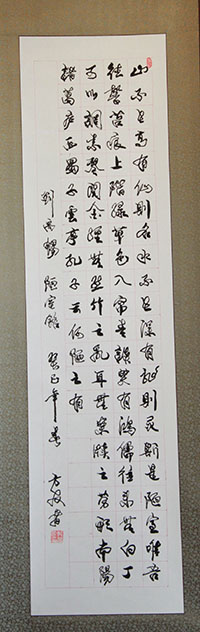 山不在高有仙則名水不在深有龍則灵斯是陋室唯吾
德馨苔痕上階綠草色入帘青談笑有鴻儒往來無白丁
可以調素琴閱金經無絲竹之亂耳無案牘之勞形南陽
諸葛庐西蜀子雲亭孔子云何陋之有
劉禹錫 陋室銘 癸巳年春 方 書